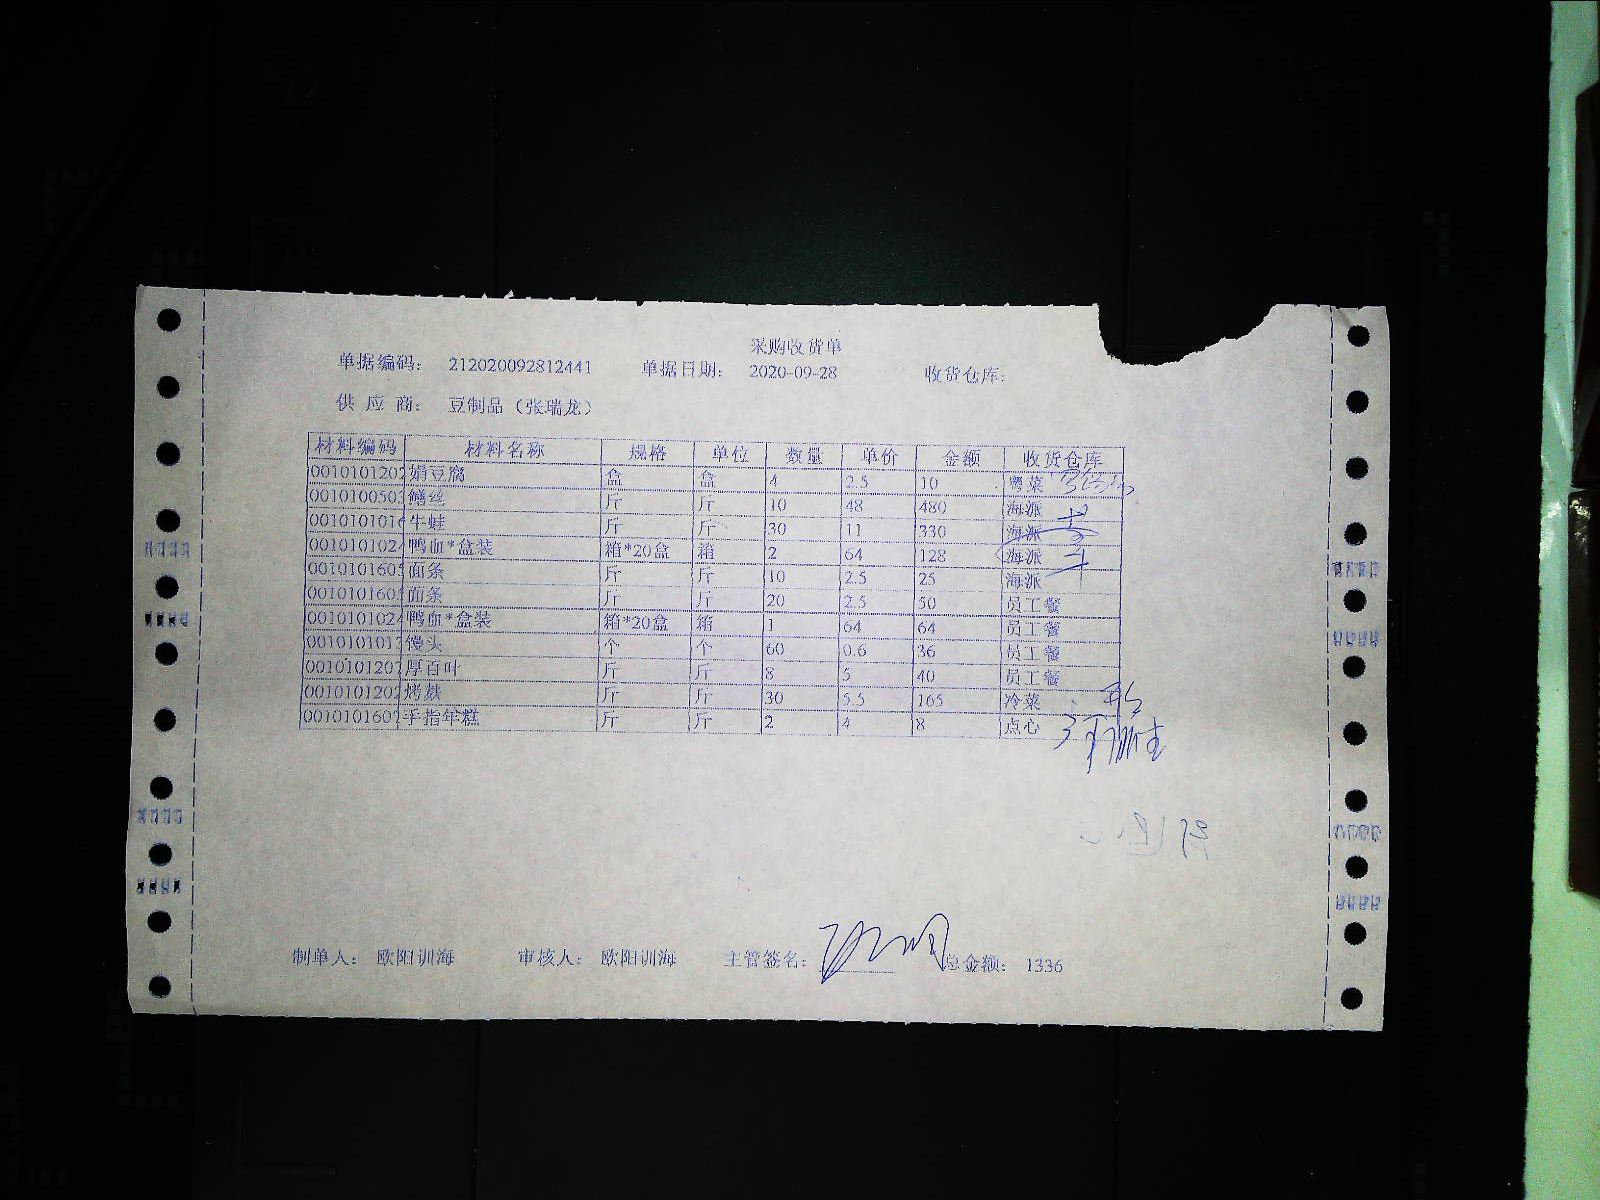 采购收货单
单据编码： 212020092812441 单据日期： 2020-09-28 收货仓库：
供 应 商： 豆制品（张瑞龙）
材料编码 材料名称 规格 单位 数量 单价 金额 收货仓库
0010101202 娟豆腐 盒 盒 4 2.5 10 粤菜
0010100503 鳝丝 斤 斤 10 48 480 海派
001010101 牛蛙 斤 斤 30 11 330 海派
001010102 鸭血*盒装 箱*20盒 箱 2 64 128 海派
001010160 面条 斤 斤 10 2.5 25 海派
001010160 面条 斤 斤 20 2.5 50 员工餐
001010102 鸭血*盒装 箱*20盒 箱 1 64 64 员工餐
001010101 馒头 个 个 60 0.6 36 员工餐
001010120 厚百叶 斤 斤 8 5 40 员工餐
0010101202 烤麸 斤 斤 30 5.5 165 冷菜
001010160 手指年糕 斤 斤 2 4 8 点心
制单人： 欧阳训海 审核人： 欧阳训海 主管签名： 总金额： 1336